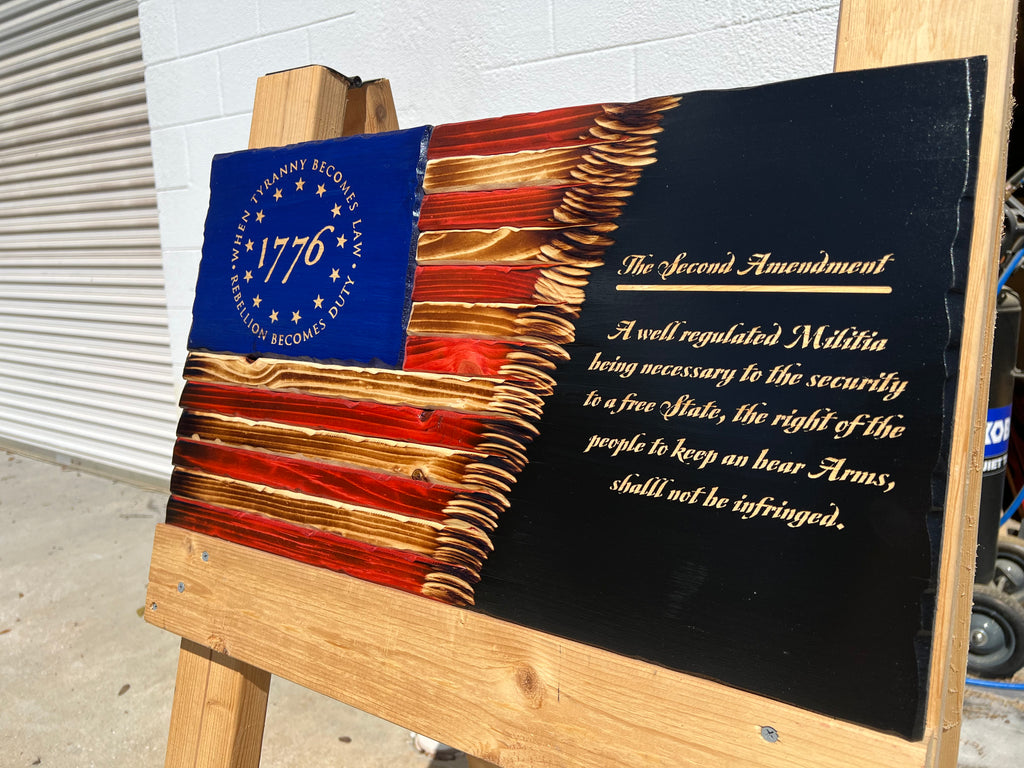 WHEN TYRANNY BECOMES LAW
1776
REBELLION BECOMES DUTY
The Second Amendment
A well regulated Militia
being necessary to the security
to a free State, the right of the
people to keep an bear Arms,
shalll not be infringed.